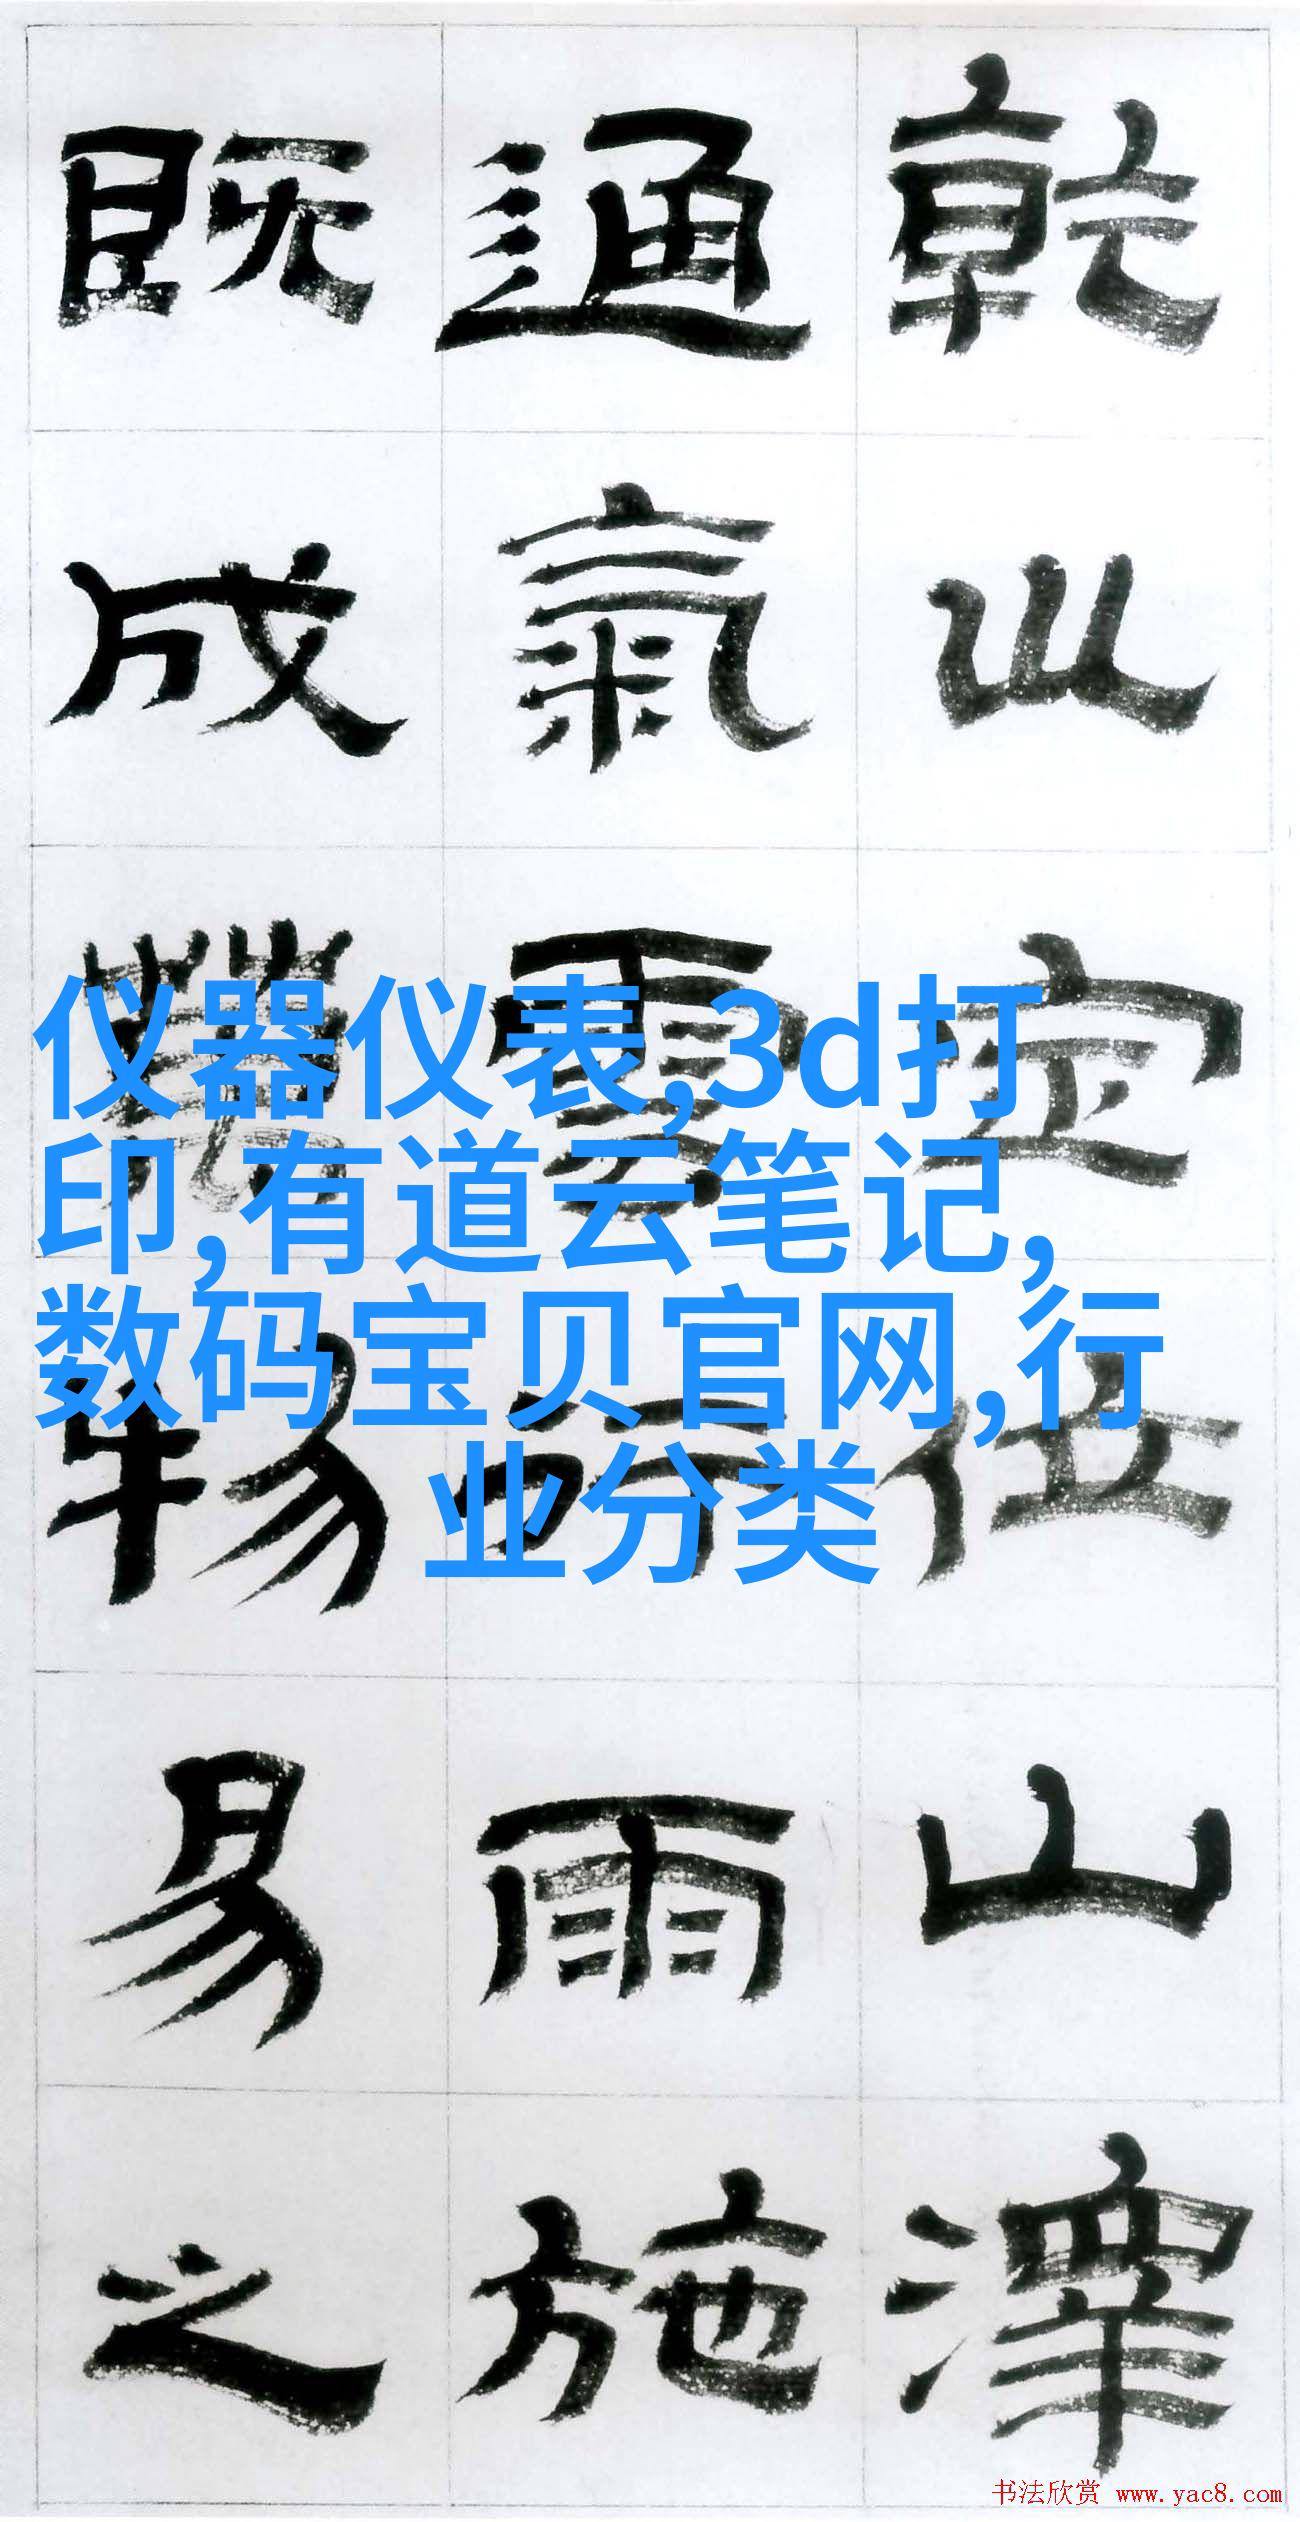 乾坤定位山澤
通氣雲行雨施
既成萬物易之
仪器仪表,3d打
印,有道云笔记,
数码宝贝官网,行
业分类
书法欣赏 www.yac8.com